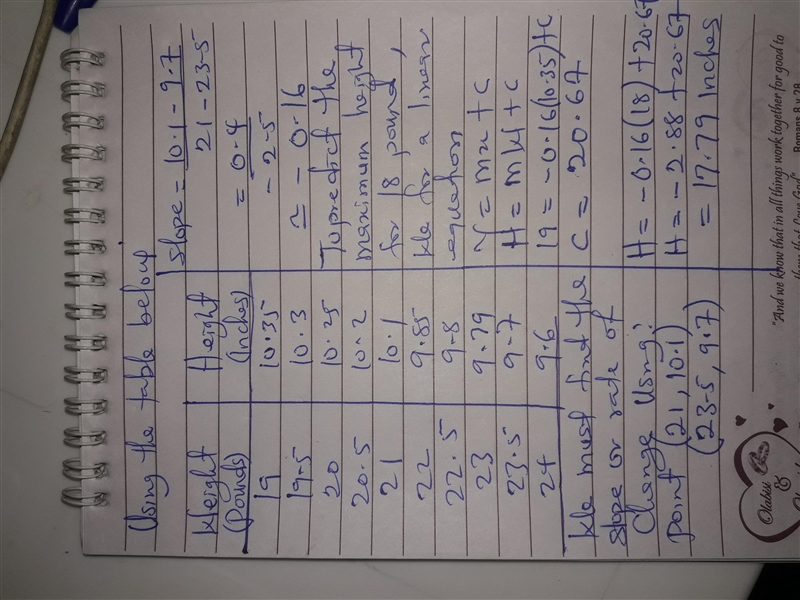 Using the table below
Weight Height
(Pounds) (Inches)
19 10.35
19.5 10.3
20 10.25
20.5 10.2
21 10.1
22 9.85
22.5 9.8
23 9.79
23.5 9.7
24 9.6
We must find the
slope or rate of
change using:
point (21, 10.1)
(23.5, 9.7)
Slope = 10.1 - 9.7
21 - 23.5
= 0.4
- 2.5
≃ - 0.16
To predict the
maximum height
for 18 pound,
we for a linear
equation
Y = mx + c
H = mW + c
19 = -0.16(10.35) + c
C = 20.67
H = -0.16(18) + 20.67
H = -2.88 + 20.67
= 17.79 Inches
"And we know that in all things work together for good to
Olabisi
&